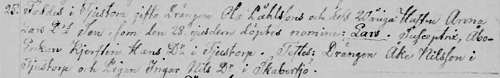 25. Föddes i Tjustorp gifta Drängen Ola Dahlssons och dess Wärga Hustru Anna
Lars Dr Son, som den 28. ejusdem döptes nomine: Lars. Susceptrix, Åbo-
Pigan Kjersten Hans Dr i Tjustorp. Testes: Drängen Åke Nilsson i
Tjustorp och Pigan Ingar Nils Dr i Skabersjö.